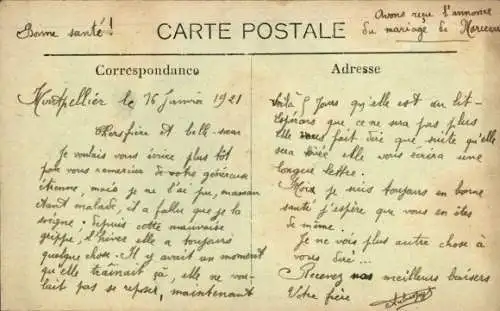 Bonne santé!
CARTE POSTALE
Avons reçu l'annonce
du mariage de
Correspondance
Adresse
Montpellier le 16 Janvier 1921
Chers frère et belle-sœur
Je voulais vous écrire plus tôt
pour vous remercier de votre généreuse
étienne, mais je ne l'ai pu, maman
étant malade, il a fallu que je la
soigne; depuis cette mauvaise
grippe, l'hiver elle a toujours
quelque chose. Il y avait un moment
qu'elle traînait ça, elle ne vou-
lait pas se reposer, maintenant
voilà 8 jours qu'elle est au lit-
Espérons que ce ne sera pas plus
Elle vous fait dire que suite qu'elle
sera elle vous écrira une
longue lettre.
Moi je suis toujours en bonne
santé j'espère que vous en êtes
de même.
Je ne vois plus autre chose à
vous dire...
Recevez nos meilleurs baisers
Votre frère